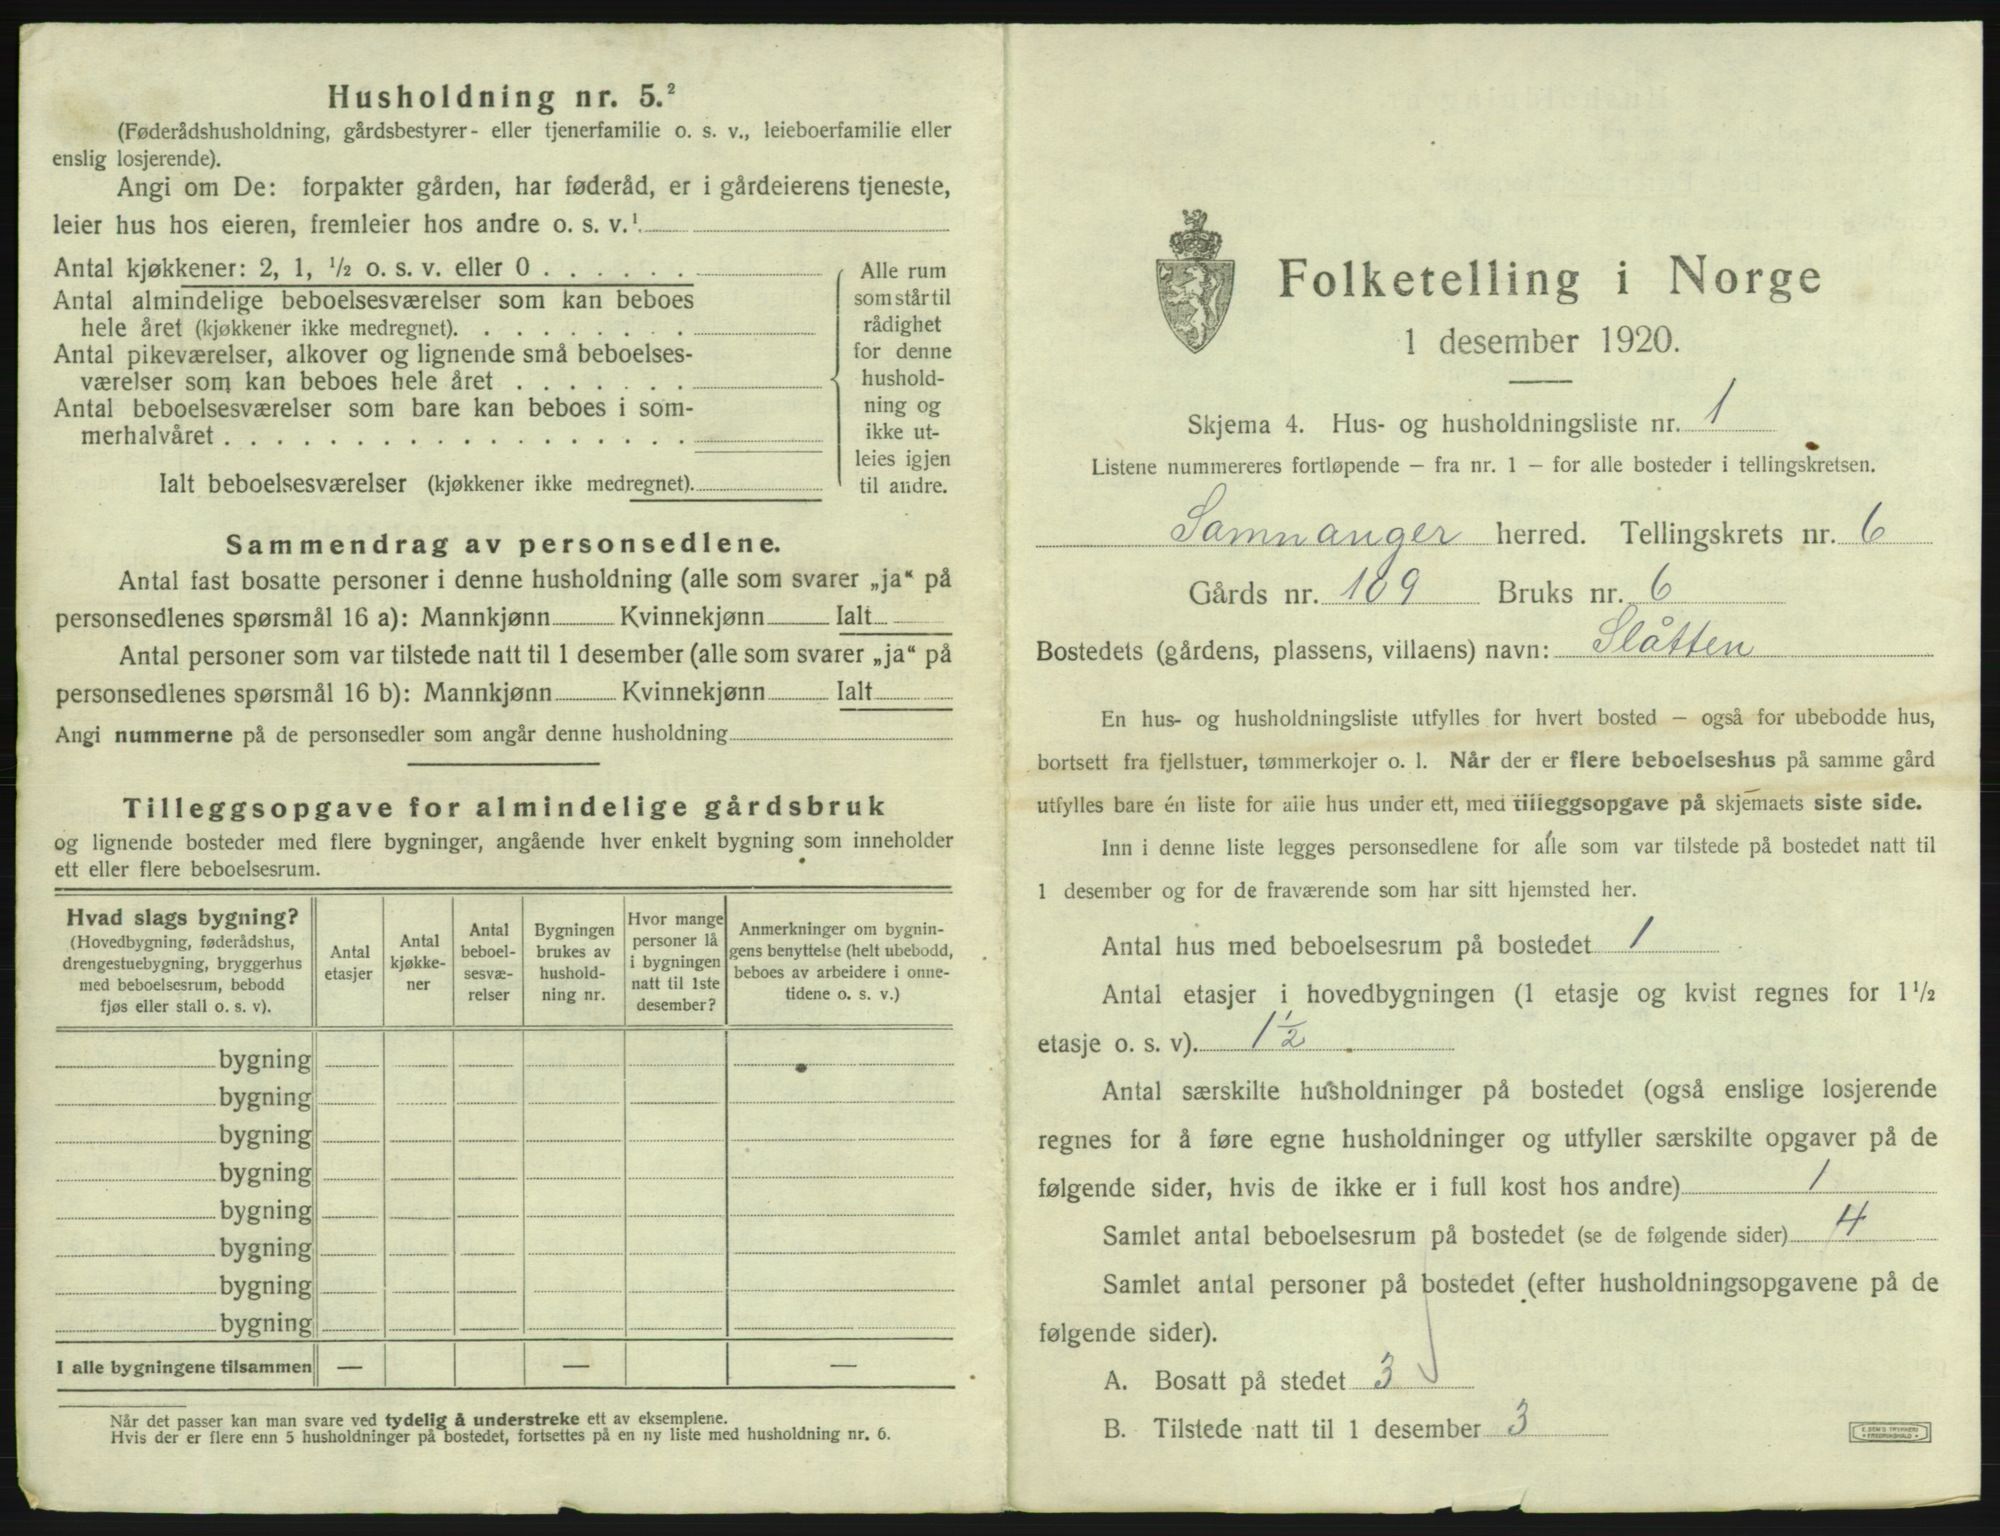 Husholdning nr. 5.²
(Føderådshusholdning, gårdsbestyrer- eller tjenerfamilie o. s. v., leieboerfamilie eller
enslig losjerende).
Angi om De: forpakter gården, har føderåd, er i gårdeierens tjeneste,
leier hus hos eieren, fremleier hos andre o. s. v.¹
Antal kjøkkener: 2, 1, ½ o. s. v. eller 0 . . . . . .
Antal almindelige beboelsesværelser som kan beboes
hele året (kjøkkener ikke medregnet). . . . . . . . .
Antal pikeværelser, alkover og lignende små beboelses-
værelser som kan beboes hele året . . . . . . .
Antal beboelsesværelser som bare kan beboes i som-
merhalvåret . . . . . . . . . . . . . . . . . .
Ialt beboelsesværelser (kjøkkener ikke medregnet).
Alle rum
som står til
rådighet
for denne
hushold-
ning og
ikke ut-
leies igjen
til andre.
Sammendrag av personsedlene.
Antal fast bosatte personer i denne husholdning (alle som svarer „ja“ på
personsedlenes spørsmål 16 a): Mannkjønn Kvinnekjønn Ialt
Antal personer som var tilstede natt til 1 desember (alle som svarer „ja“ på
personsedlenes spørsmål 16 b): Mannkjønn Kvinnekjønn Ialt
Angi nummerne på de personsedler som angår denne husholdning
Tilleggsopgave for almindelige gårdsbruk
og lignende bosteder med flere bygninger, angående hver enkelt bygning som inneholder
ett eller flere beboelsesrum.
Hvad slags bygning?
(Hovedbygning, føderådshus,
drengestuebygning, bryggerhus
med beboelsesrum, bebodd
fjøs eller stall o. s. v).
Antal
etasjer
Antal
kjøkke-
ner
Antal
beboel-
sesvæ-
relser
Bygningen
brukes av
hushold-
ning nr.
Hvor mange
personer lå
i bygningen
natt til 1ste
desember?
Anmerkninger om bygnin-
gens benyttelse (helt ubebodd,
beboes av arbeidere i onne-
tidene o. s. v.)
bygning
bygning
bygning
bygning
bygning
bygning
bygning
bygning
I alle bygningene tilsammen — — —
Når det passer kan man svare ved tydelig å understreke ett av eksemplene.
Hvis der er flere enn 5 husholdninger på bostedet, fortsettes på en ny liste med husholdning nr. 6.
Folketelling i Norge
1 desember 1920.
Skjema 4. Hus- og husholdningsliste nr. 1
Listene nummereres fortløpende – fra nr. 1 – for alle bosteder i tellingskretsen.
Samnanger herred. Tellingskrets nr. 6
Gårds nr. 109 Bruks nr. 6
Bostedets (gårdens, plassens, villaens) navn: Slåtten
En hus- og husholdningsliste utfylles for hvert bosted – også for ubebodde hus,
bortsett fra fjellstuer, tømmerkojer o. l. Når der er flere beboelseshus på samme gård
utfylles bare én liste for alle hus under ett, med tilleggsopgave på skjemaets siste side.
Inn i denne liste legges personsedlene for alle som var tilstede på bostedet natt til
1 desember og for de fraværende som har sitt hjemsted her.
Antal hus med beboelsesrum på bostedet 1
Antal etasjer i hovedbygningen (1 etasje og kvist regnes for 1½
etasje o. s. v). 1½
Antal særskilte husholdninger på bostedet (også enslige losjerende
regnes for å føre egne husholdninger og utfyller særskilte opgaver på de
følgende sider, hvis de ikke er i full kost hos andre) 1
Samlet antal beboelsesrum på bostedet (se de følgende sider) 4
Samlet antal personer på bostedet (efter husholdningsopgavene på de
følgende sider).
A. Bosatt på stedet 3
B. Tilstede natt til 1 desember 3
E. SEM'S TRYKKERI
FREDRIKSHALD